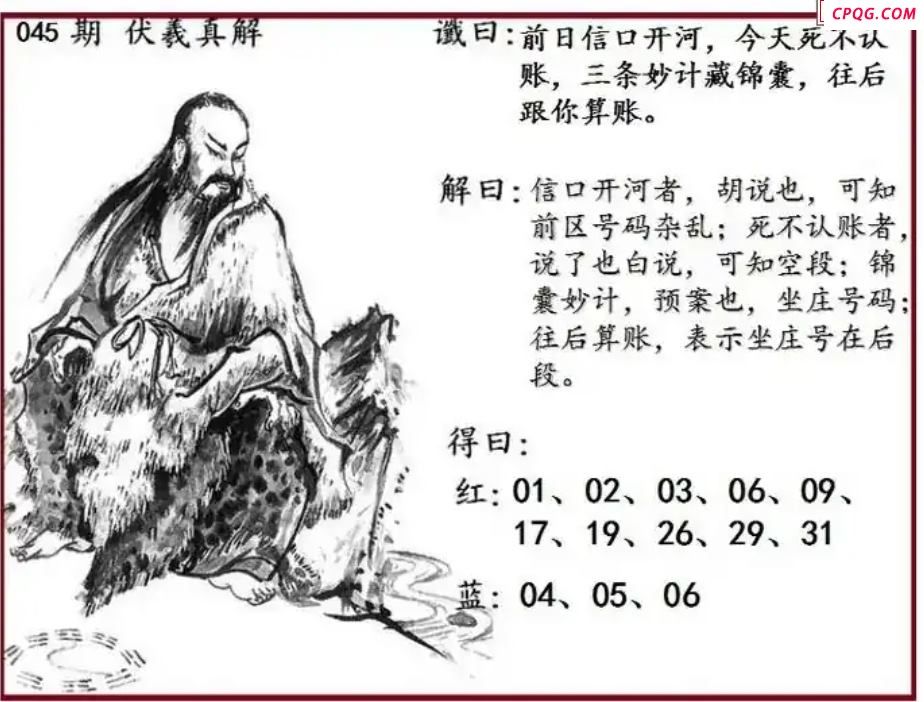 CPQG.COM
045 期 伏羲真解
谶曰：前日信口开河，今天死不认
账，三条妙计藏锦囊，往后
跟你算账。
解曰：信口开河者，胡说也，可知
前区号码杂乱；死不认账者，
说了也白说，可知空段；锦
囊妙计，预案也，坐庄号码；
往后算账，表示坐庄号在后
段。
得曰：
红：01、02、03、06、09、
17、19、26、29、31
蓝：04、05、06